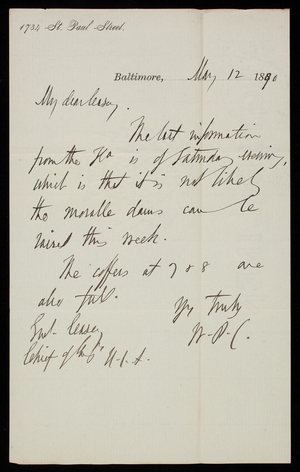 1734 St. Paul Street.
Baltimore, May 12 1890
My dear Casey.
The last information
from the Ho is of Saturday evening,
which is that it is not likely
the movable dams can be
raised this week.
The coffers at 7 & 8 are
also full.
Yrs truly
W.P.C.
Genl. Casey
Chief of Engs U.S.A.